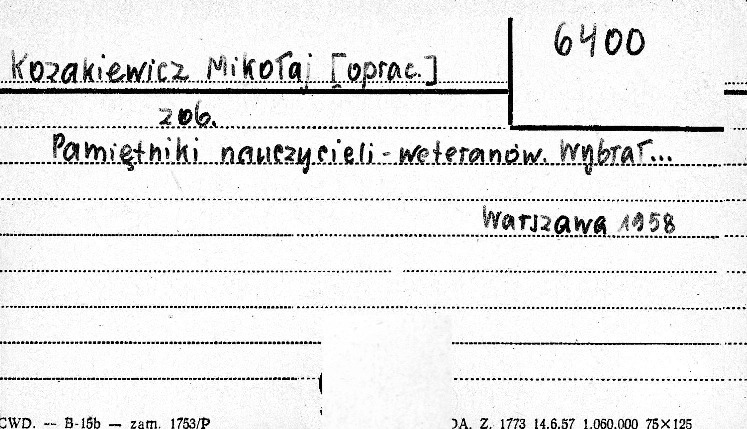 6400
Kozakiewicz Mikołaj [oprac.]
zob.
Pamiętniki nauczycieli-weteranów. Wybrał...
Warszawa 1958
CWD. — B-15b — zam. 1753/P
DA. Z. 1773 14.6.57 1.060.000 75×125